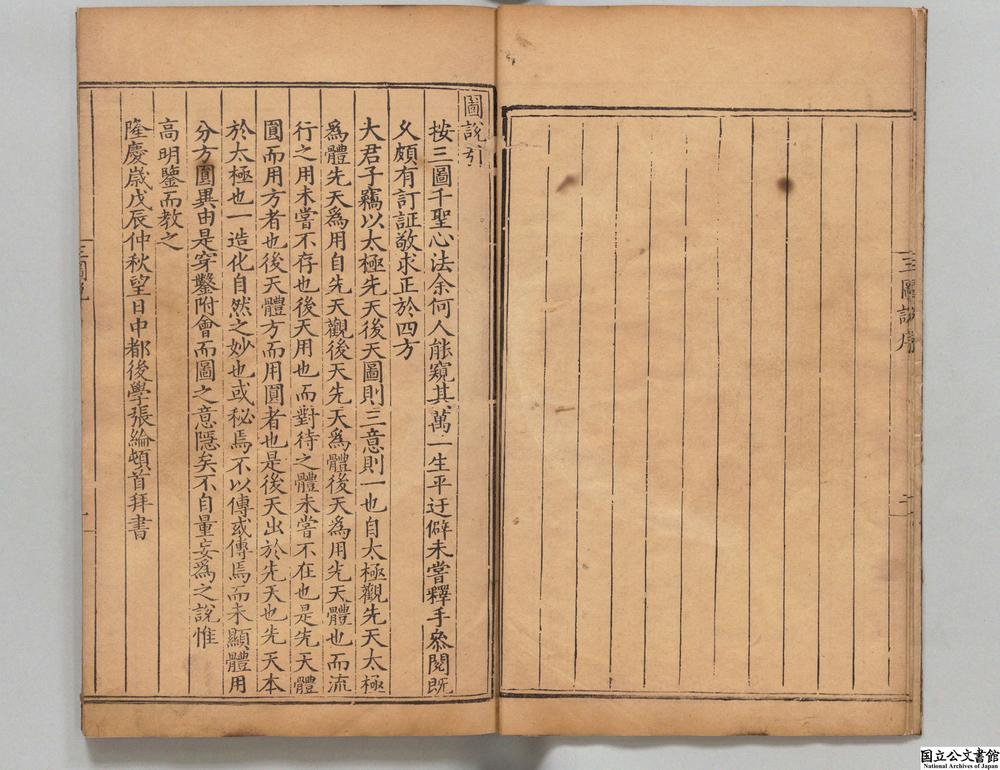 三圖說序
二
圖說引
按三圖千聖心法余何人能窺其萬一生平迂僻未嘗釋手叅閱既
乆頗有訂証敬求正於四方
大君子竊以太極先天後天圖則三意則一也自太極觀先天太極
爲體先天爲用自先天觀後天先天爲體後天爲用先天體也而流
行之用未嘗不存也後天用也而對待之體未嘗不在也是先天體
圓而用方者也後天體方而用圓者也是後天出於先天也先天本
於太極也一造化自然之妙也或秘焉不以傳或傳焉而未顯體用
分方圓異由是穿鑿附會而圖之意隱矣不自量妄爲之說惟
高明鑒而教之
隆慶歲戊辰仲秋望日中都後學張綸頓首拜書
三圖說
一
国立公文書館
National Archives of Japan